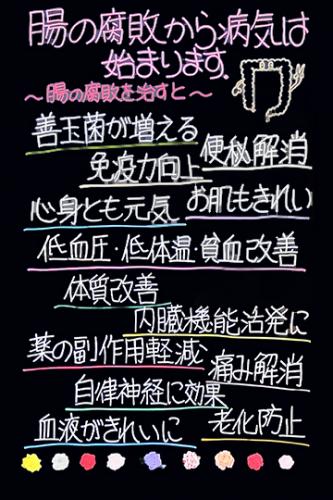 腸の腐敗から病気は
始まります.
～腸の腐敗を治すと～
善玉菌が増える
便秘解消
免疫力向上
お肌もきれい
心身とも元気
低血圧・低体温・貧血改善
体質改善
内臓機能活発に
薬の副作用軽減
痛み解消
自律神経に効果
老化防止
血液がきれいに